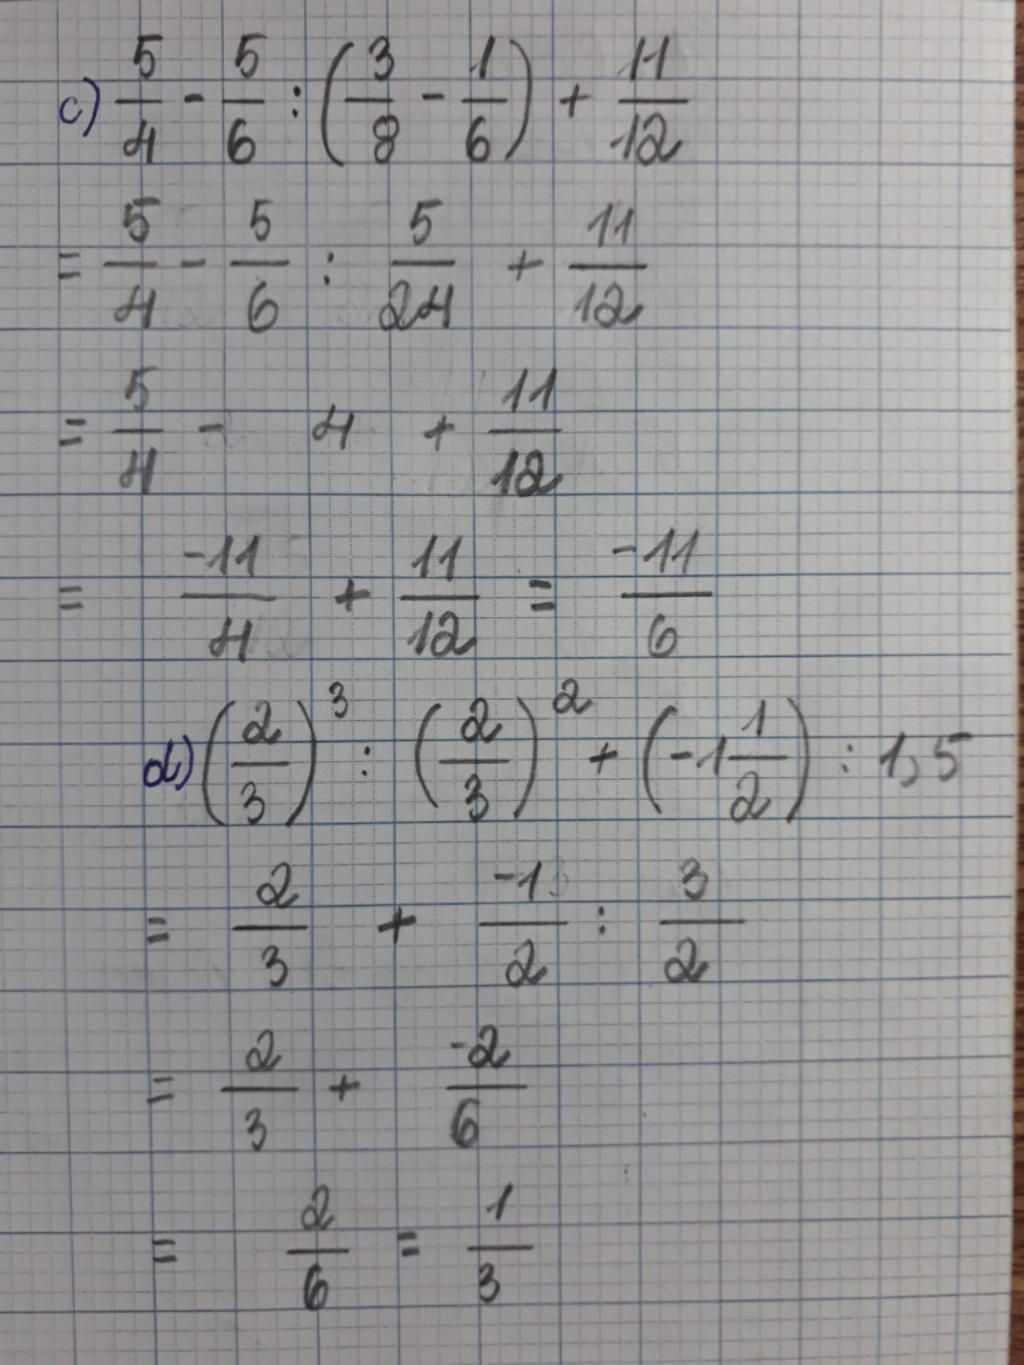 c) 5/4 - 5/6 : (3/8 - 1/6) + 11/12
= 5/4 - 5/6 : 5/24 + 11/12
= 5/4 - 4 + 11/12
= -11/4 + 11/12 = -11/6
d) (2/3)^3 : (2/3)^2 + (-1 1/2) : 1,5
= 2/3 + -1/2 : 3/2
= 2/3 + -2/6
= 2/6 = 1/3